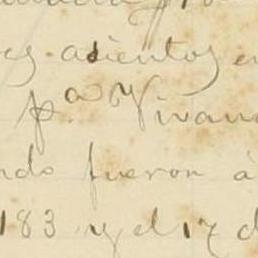 es asientos en
pª Vivan
ndo fueron á
183 y el 17 d